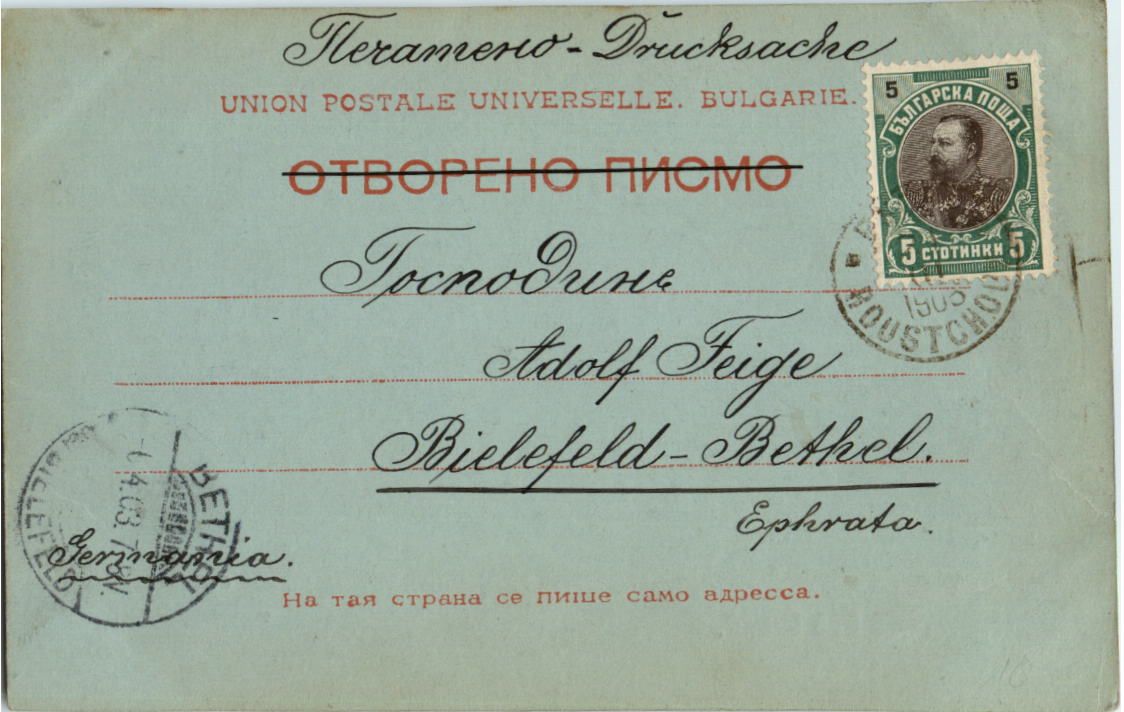 Печатено - Drucksache
UNION POSTALE UNIVERSELLE. BULGARIE.
ОТВОРЕНО ПИСМО
5 5
БЪЛГАРСКА ПОЩА
5 СТОТИНКИ 5
1903
ROUSTCHOU
Господинъ
Adolf Feige
Bielefeld - Bethel.
Ephrata.
BIELEFELD
BETHEL
4.03.7-8V.
Germania.
На тая страна се пише само адресса.
18